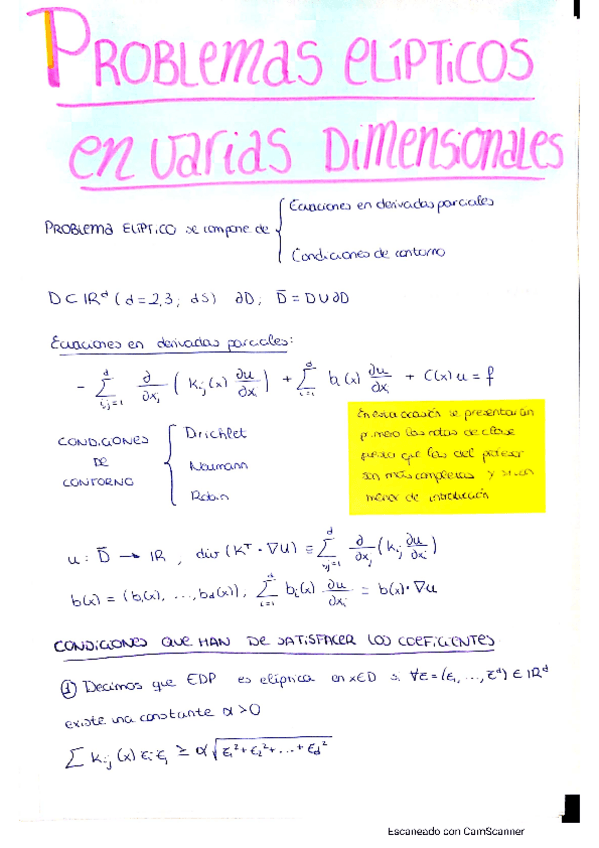 PROBLEMAS ELÍPTICOS
en varias Dimensionales
PROBLEMA ELÍPTICO se compone de { Ecuaciones en derivadas parciales
Condiciones de contorno
D ⊂ IRᵈ (d = 2,3; dS) ∂D; D̄ = D ∪ ∂D
Ecuaciones en derivadas parciales:
- Σ_{i,j=1}^d ∂/∂xⱼ (Kᵢⱼ(x) ∂u/∂xᵢ) + Σ_{i=1}^d bᵢ(x) ∂u/∂xᵢ + C(x)u = f
CONDICIONES DE CONTORNO { Dirichlet
Neumann
Robin
En esta ocasión se presentarán
primero las notas de clase
puesto que las del profesor
son más completas y sirven
menor de introducción
u: D̄ → IR, div(Kᵀ·∇u) = Σ_{i,j=1}^d ∂/∂xⱼ (Kᵢⱼ ∂u/∂xᵢ)
b(x) = (b₁(x), ..., b_d(x)), Σ_{i=1}^d bᵢ(x) ∂u/∂xᵢ = b(x)·∇u
CONDICIONES QUE HAN DE SATISFACER LOS COEFICIENTES
① Decimos que EDP es elíptica en x∈D si ∀ε = (ε₁, ..., εᵈ) ∈ IRᵈ
existe una constante α>0
Σ Kᵢⱼ(x) εᵢ εⱼ ≥ α √(ε₁² + ε₂² + ... + ε_d²)
Escaneado con CamScanner